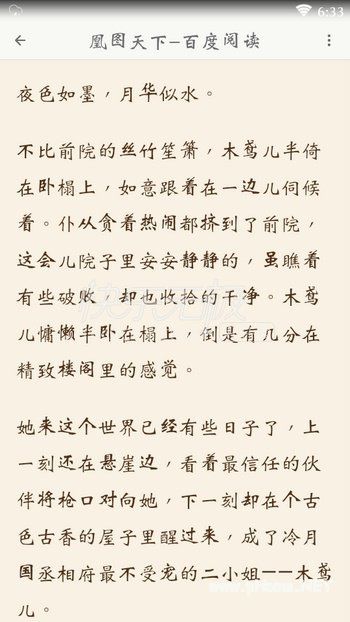 6:33
凰图天下-百度阅读
夜色如墨，月华似水。
不比前院的丝竹笙箫，木鸢儿半倚
在卧榻上，如意跟着在一边儿伺候
着。仆从贪着热闹都挤到了前院，
这会儿院子里安安静静的，虽瞧着
有些破败，却也收拾的干净。木鸢
儿慵懒半卧在榻上，倒是有几分在
精致楼阁里的感觉。
她来这个世界已经有些日子了，上
一刻还在悬崖边，看着最信任的伙
伴将枪口对向她，下一刻却在个古
色古香的屋子里醒过来，成了冷月
国丞相府最不受宠的二小姐——木鸢
儿。